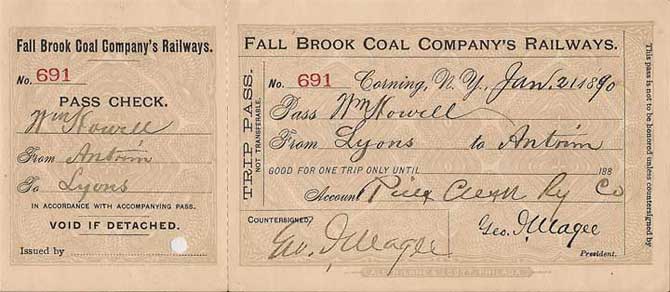 Fall Brook Coal Company's Railways.
No. 691
PASS CHECK.
Wm Howell
From Antrim
To Lyons
IN ACCORDANCE WITH ACCOMPANYING PASS.
VOID IF DETACHED.
Issued by
FALL BROOK COAL COMPANY'S RAILWAYS.
TRIP PASS.
NOT TRANSFERABLE.
No. 691 Corning, N.Y., Jan. 2, 1890
Pass Wm Howell
From Lyons to Antrim
GOOD FOR ONE TRIP ONLY UNTIL 188
Account Ry Co
COUNTERSIGNED:
Geo. J. Magee
Geo. J. Magee
President.
This pass is not to be honored unless countersigned by